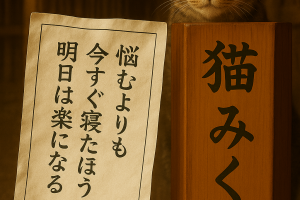 悩むよりも
今すぐ寝たほう
明日は楽になる
猫みく